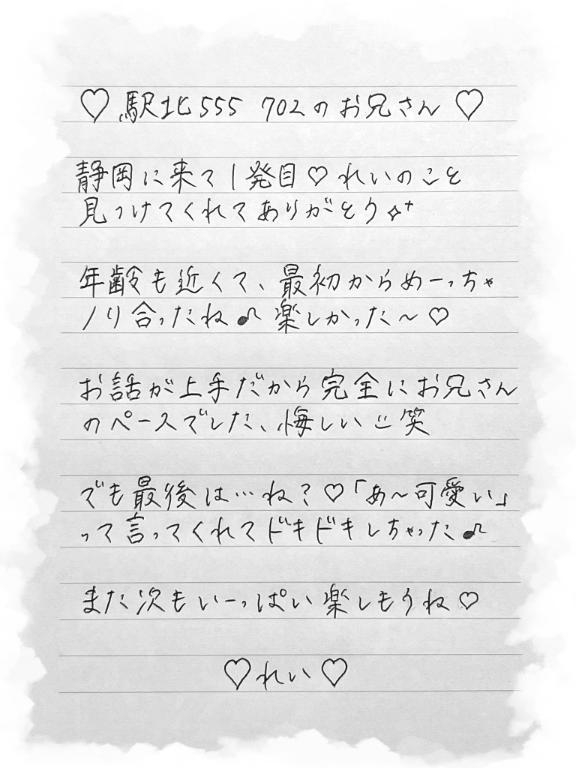 ♡駅北555 702のお兄さん♡
静岡に来て1発目♡れいのこと
見つけてくれてありがとう✧⁺
年齢も近くて、最初からめーっちゃ
ノリ合ったね♪楽しかった〜♡
お話が上手だから完全にお兄さん
のペースでした、悔しい 笑
でも最後は…ね？♡「あ〜可愛い」
って言ってくれてドキドキしちゃった♪
また次もいーっぱい楽しもうね♡
♡れい♡